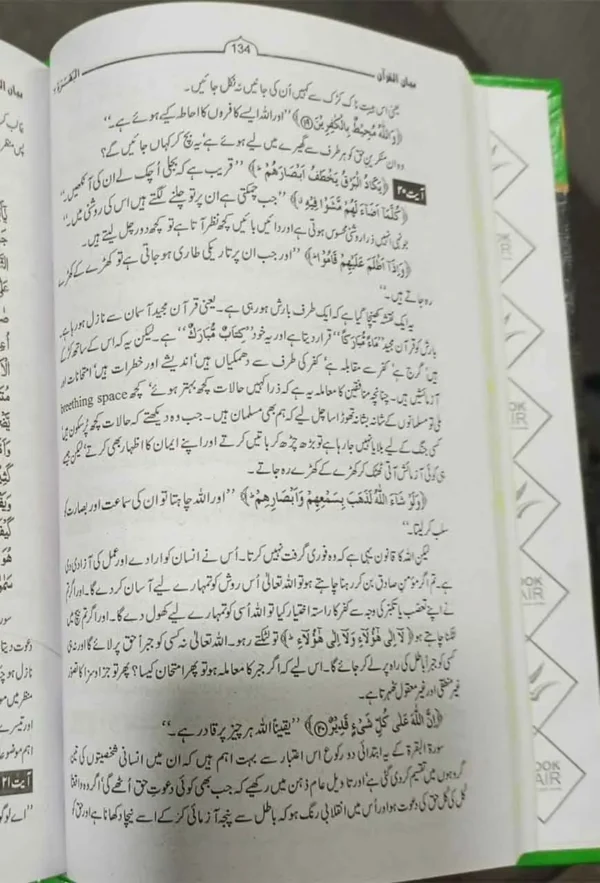 بیان القرآن
134
البقرۃ ۲
یعنی اس ہیبت ناک کڑک سے کہیں اُن کی جانیں نہ نکل جائیں۔
﴿وَاللّٰهُ مُحِيْطٌ بِالْكٰفِرِيْنَ﴿۱۹﴾﴾ ’’اور اللہ ایسے کافروں کا احاطہ کیے ہوئے ہے۔‘‘
وہ ان منکرینِ حق کو ہر طرف سے گھیرے میں لیے ہوئے ہے‘ یہ بچ کر کہاں جائیں گے؟
آیت ۲۰ ﴿يَكَادُ الْبَرْقُ يَخْطَفُ اَبْصَارَهُمْ ؕ﴾ ’’قریب ہے کہ بجلی اُچک لے ان کی آنکھیں۔‘‘
﴿كُلَّمَآ اَضَآءَ لَهُمْ مَّشَوْا فِيْهِ ۙ﴾ ’’جب چمکتی ہے ان پر تو چلنے لگتے ہیں اس کی روشنی میں۔‘‘
جونہی انہیں ذرا روشنی محسوس ہوتی ہے اور دائیں بائیں کچھ نظر آتا ہے تو کچھ دور چل لیتے ہیں۔
﴿وَاِذَآ اَظْلَمَ عَلَيْهِمْ قَامُوْا ؕ﴾ ’’اور جب ان پر تاریکی طاری ہو جاتی ہے تو کھڑے کے کھڑے
رہ جاتے ہیں۔‘‘
یہ ایک نقشہ کھینچا گیا ہے کہ ایک طرف بارش ہو رہی ہے۔ یعنی قرآن مجید آسمان سے نازل ہو رہا ہے۔
بارش کو قرآن مجید ’’مَآءً مُّبٰرَكًا‘‘ قرار دیتا ہے اور یہ خود ’’كِتٰبٌ مُّبٰرَكٌ‘‘ ہے۔ لیکن یہ کہ اس کے ساتھ کڑکے
ہیں‘ گرج ہے‘ کفر سے مقابلہ ہے‘ کفر کی طرف سے دھمکیاں ہیں‘ اندیشے اور خطرات ہیں‘ امتحانات اور
آزمائشیں ہیں۔ چنانچہ منافقین کا معاملہ یہ ہے کہ ذرا کہیں حالات کچھ بہتر ہوئے‘ کچھ breething space
ملی تو مسلمانوں کے شانہ بشانہ تھوڑا سا چل لیے کہ ہم بھی مسلمان ہیں۔ جب وہ دیکھتے کہ حالات کچھ پُرسکون ہیں
کسی جنگ کے لیے بلایا نہیں جا رہا ہے تو بڑھ چڑھ کر باتیں کرتے اور اپنے ایمان کا اظہار بھی کرتے‘ لیکن جیسے
ہی کوئی آزمائش آتی ٹھٹک کر کھڑے کے کھڑے رہ جاتے۔
﴿وَلَوْ شَآءَ اللّٰهُ لَذَهَبَ بِسَمْعِهِمْ وَاَبْصَارِهِمْ ؕ﴾ ’’اور اللہ چاہتا تو ان کی سماعت اور بصارت کو
سلب کر لیتا۔‘‘
لیکن اللہ کا قانون یہی ہے کہ وہ فوری گرفت نہیں کرتا۔ اُس نے انسان کو ارادے اور عمل کی آزادی دی
ہے۔ تم اگر مؤمنِ صادق بن کر رہنا چاہتے ہو تو اللہ تعالیٰ اُس روش کو تمہارے لیے آسان کر دے گا۔ اور اگر تم
نے اپنے تعصب یا تکبر کی وجہ سے کفر کا راستہ اختیار کیا تو اللہ اُسی کو تمہارے لیے کھول دے گا۔ اور اگر تم بیچ میں
لٹکنا چاہتے ہو ﴿لَآ اِلٰى هٰٓؤُلَآءِ وَلَآ اِلٰى هٰٓؤُلَآءِ ؕ﴾ تو لٹکتے رہو۔ اللہ تعالیٰ نہ کسی کو جبراً حق پر لائے گا اور نہ ہی
کسی کو جبراً باطل کی راہ پر لے کر جائے گا۔ اس لیے کہ اگر جبر کا معاملہ ہو تو پھر امتحان کیسا؟ پھر تو جزا و سزا کا تصور
غیر منطقی اور غیر معقول ٹھہرتا ہے۔
﴿اِنَّ اللّٰهَ عَلٰى كُلِّ شَيْءٍ قَدِيْرٌ﴿۲۰﴾﴾ ’’یقیناً اللہ ہر چیز پر قادر ہے۔‘‘
سورۃ البقرۃ کے یہ ابتدائی دو رکوع اس اعتبار سے بہت اہم ہیں کہ ان میں انسانی شخصیتوں کی تین
گروہوں میں تقسیم کر دی گئی ہے‘ اور تاویل عام ذہن میں رکھیے کہ جب بھی کوئی دعوتِ حق اُٹھے گی‘ اگر وہ واقعتاً
کُل کی کُل حق کی دعوت ہو اور اُس میں انقلابی رنگ ہو کہ باطل سے پنجہ آزمائی کر کے اسے نیچا دکھانا ہے اور حق کو
آیت ۲۱